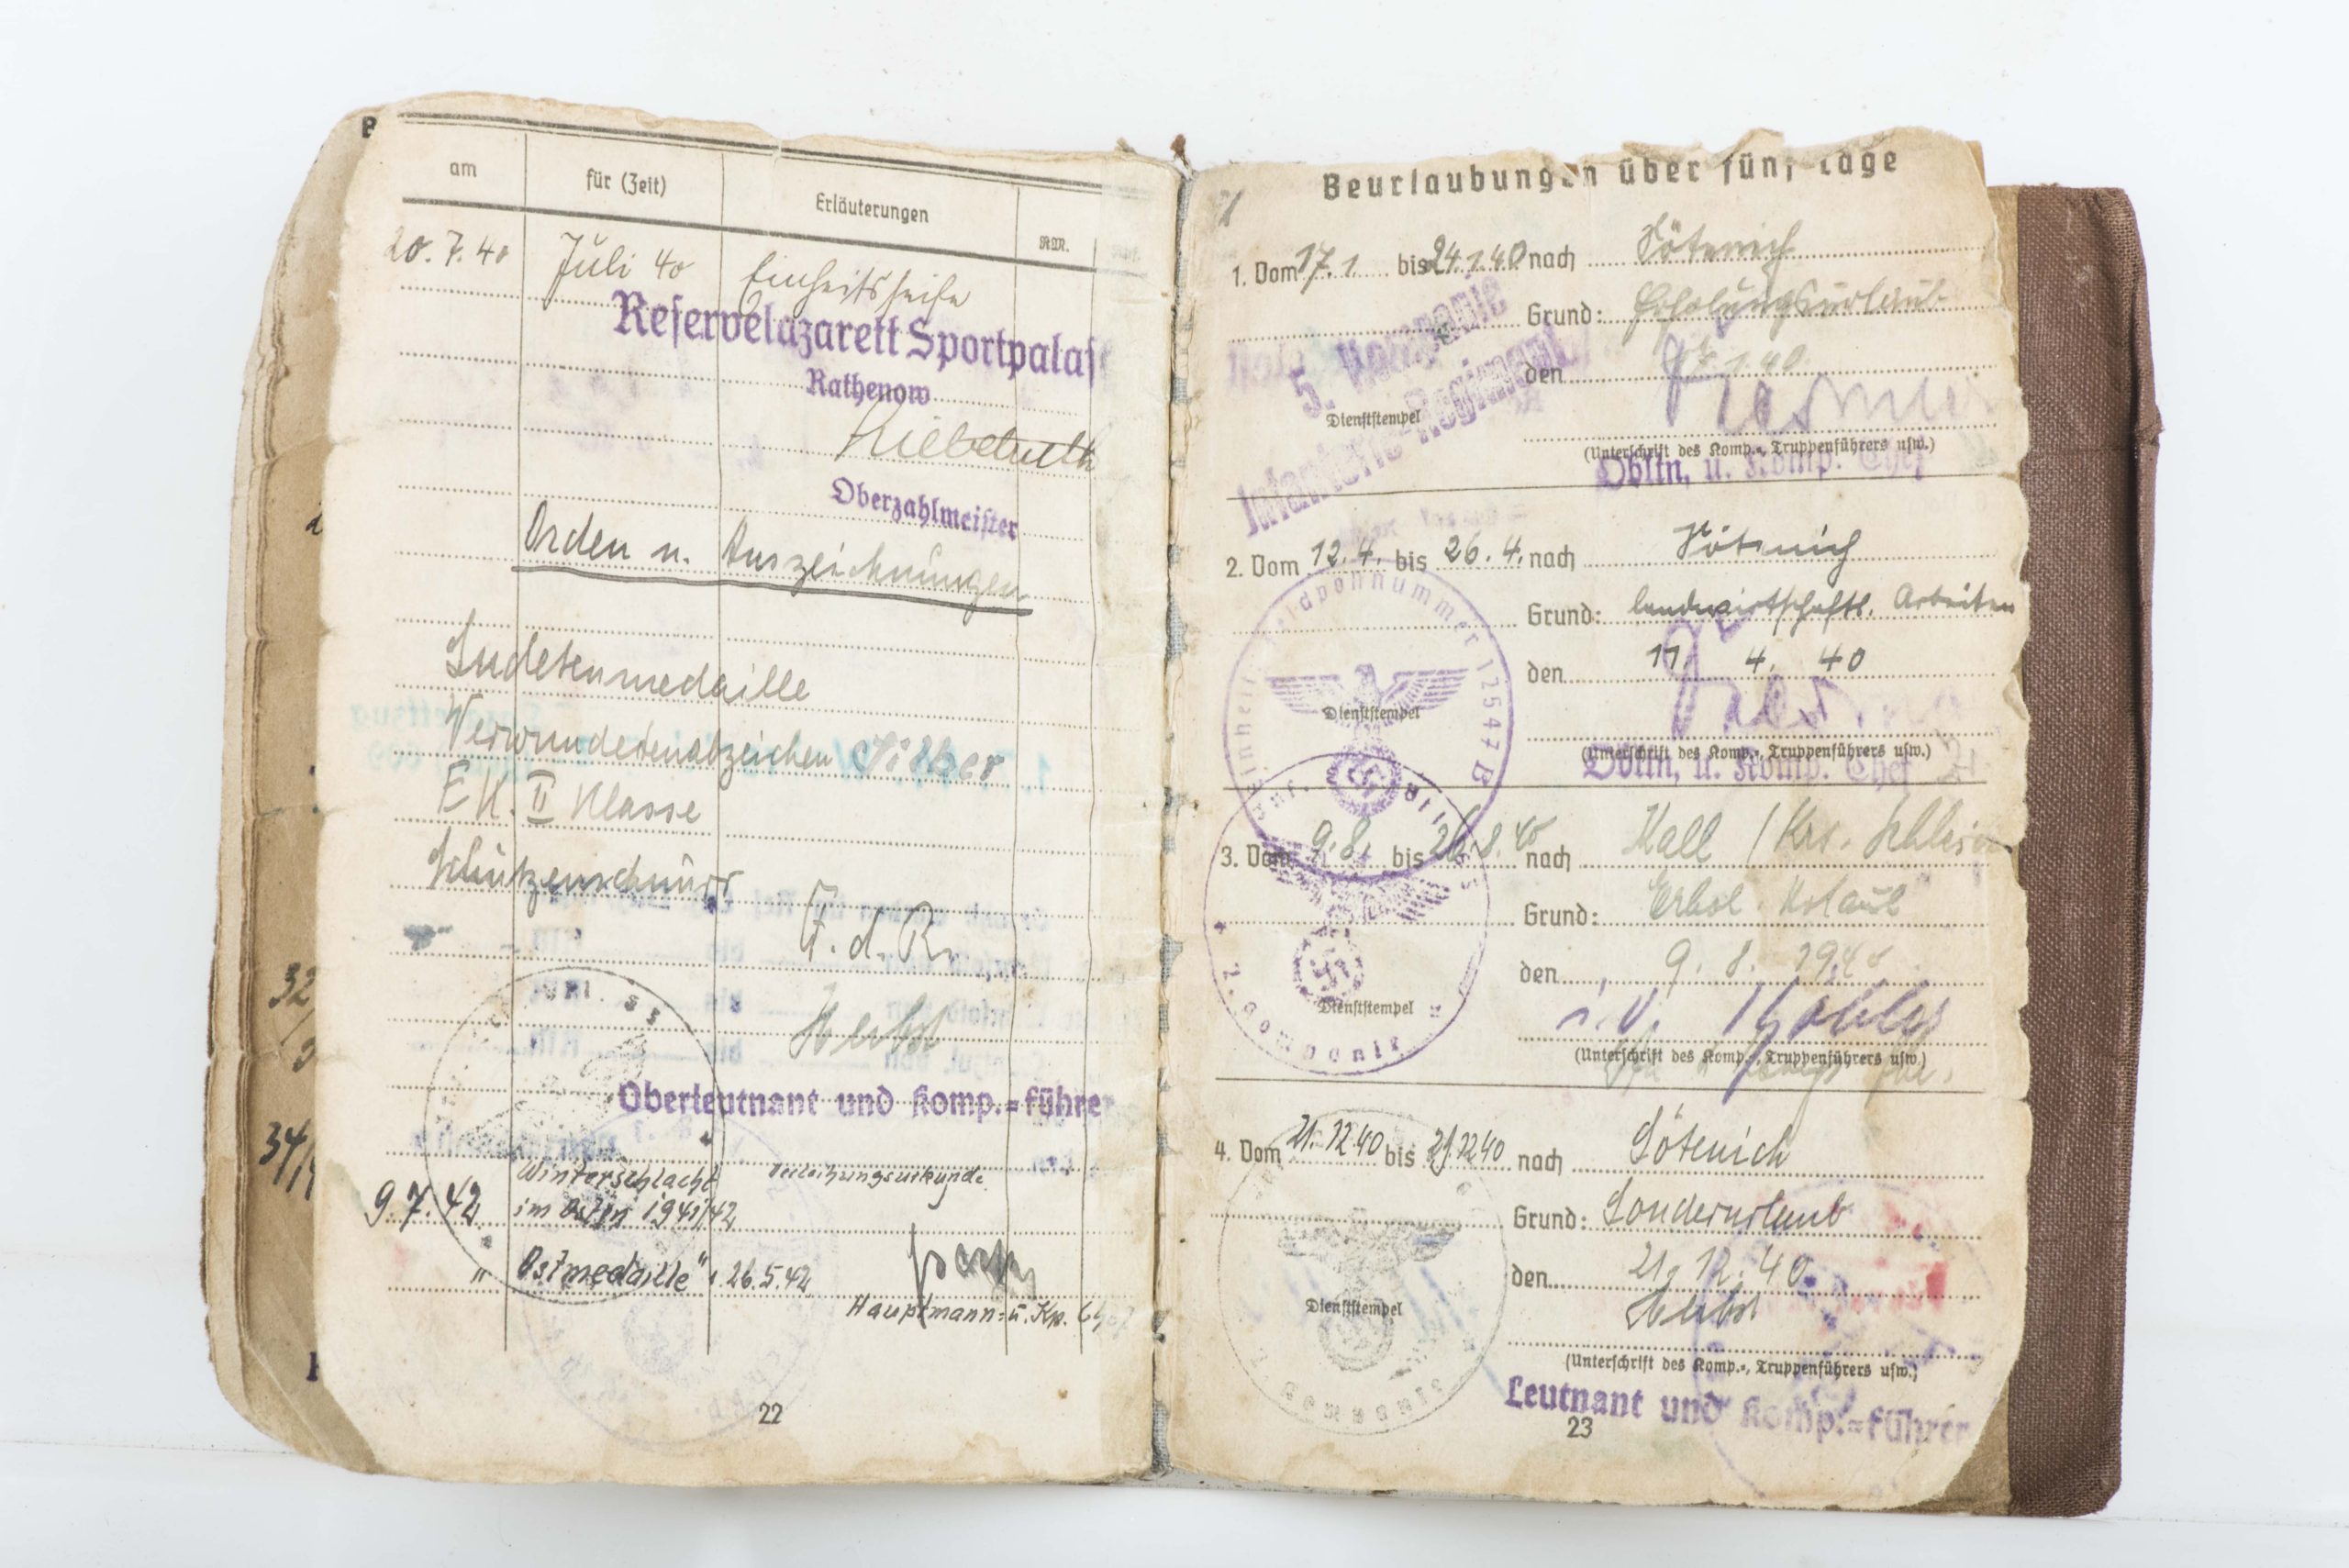 am für (Zeit) Erläuterungen RM.
20.7.40 Juli 40 Einheitsseife
Reservelazarett Sportpalas
Rathenow
Oberzahlmeister
Orden u. Auszeichnungen
Sudetenmedaille
Verwundetenabzeichen Silber
E K. II Klasse
Schützenschnur
F. d. R.
Herbst
Oberleutnant und Komp.=führe
Winterschlacht Verleihungsurkunde
9.7.42 im Osten 1941/42
" Ostmedaille" 26.5.42
Hauptmann u. Kp.
22
Beurlaubungen über fünf Tage
1. Vom 17.1. bis 24.1.40 nach Sötenich
Grund: Erholungsurlaub
5. Kompanie
Infanterie-Regiment
den 1.40
Dienststempel
(Unterschrift des Komp.-, Truppenführers usw.)
Obltn. u. Komp. Chef
2. Vom 12.4. bis 26.4. nach Sötenich
Grund: landwirtschaftl. Arbeiten
Feldpostnummer 12547 B
den 11. 4. 40
Dienststempel
(Unterschrift des Komp.-, Truppenführers usw.)
Obltn. u. Komp. Chef
3. Vom 9.8. bis 26.8.40 nach Kall / Krs. Schleid
Grund: Erhol. Urlaub
den 9. 8. 1940
Dienststempel
i. V.
(Unterschrift des Komp.-, Truppenführers usw.)
4. Vom 21.12.40 bis 29.12.40 nach Sötenich
Grund: Sonderurlaub
den 21.12.40
Herbst
Dienststempel
(Unterschrift des Komp.-, Truppenführers usw.)
Leutnant und Komp.=führer
23